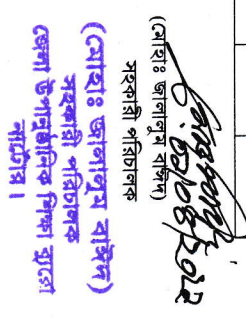 ০২/০৪/২০১২
(মোহাঃ জালালুম বাঈদ)
সহকারী পরিচালক
(মোহাঃ জালালুম বাঈদ)
সহকারী পরিচালক
জেলা উপানুষ্ঠানিক শিক্ষা ব্যুরো
নাটোর।